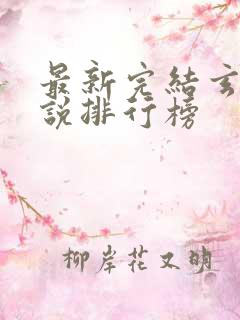 最新完結玄
說排行榜
柳岸花又明